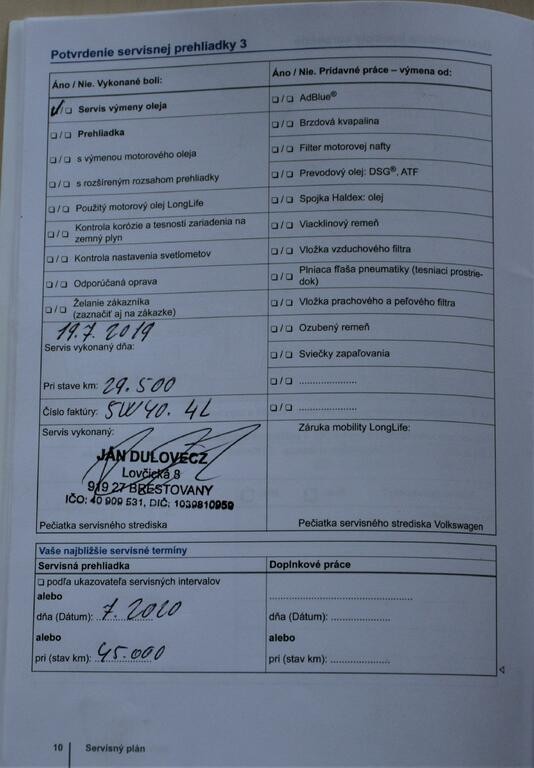 Potvrdenie servisnej prehliadky 3
Áno / Nie. Vykonané boli:
✓/❑ Servis výmeny oleja
❑ / ❑ Prehliadka
❑ / ❑ s výmenou motorového oleja
❑ / ❑ s rozšíreným rozsahom prehliadky
❑ / ❑ Použitý motorový olej LongLife
❑ / ❑ Kontrola korózie a tesnosti zariadenia na
zemný plyn
❑ / ❑ Kontrola nastavenia svetlometov
❑ / ❑ Odporúčaná oprava
❑ / ❑ Želanie zákazníka
(zaznačiť aj na zákazke)
19.7.2019
Servis vykonaný dňa:
Pri stave km: 29.500
Číslo faktúry: 5W40. 4L
Servis vykonaný:
JÁN DULOVECZ
Lovčická 8
919 27 BRESTOVANY
IČO: 40 909 531, DIČ: 1039810959
Pečiatka servisného strediska
Áno / Nie. Prídavné práce – výmena od:
❑ / ❑ AdBlue®
❑ / ❑ Brzdová kvapalina
❑ / ❑ Filter motorovej nafty
❑ / ❑ Prevodový olej: DSG®, ATF
❑ / ❑ Spojka Haldex: olej
❑ / ❑ Viacklinový remeň
❑ / ❑ Vložka vzduchového filtra
❑ / ❑ Plniaca fľaša pneumatiky (tesniaci prostrie-
dok)
❑ / ❑ Vložka prachového a peľového filtra
❑ / ❑ Ozubený remeň
❑ / ❑ Sviečky zapaľovania
❑ / ❑ .....................
❑ / ❑ .....................
Záruka mobility LongLife:
Pečiatka servisného strediska Volkswagen
Vaše najbližšie servisné termíny
Servisná prehliadka
❑ podľa ukazovateľa servisných intervalov
alebo
dňa (Dátum): 7.2020
alebo
pri (stav km): 45.000
Doplnkové práce
....................................................
dňa (Dátum): .....................
alebo
pri (stav km): .....................
10 Servisný plán